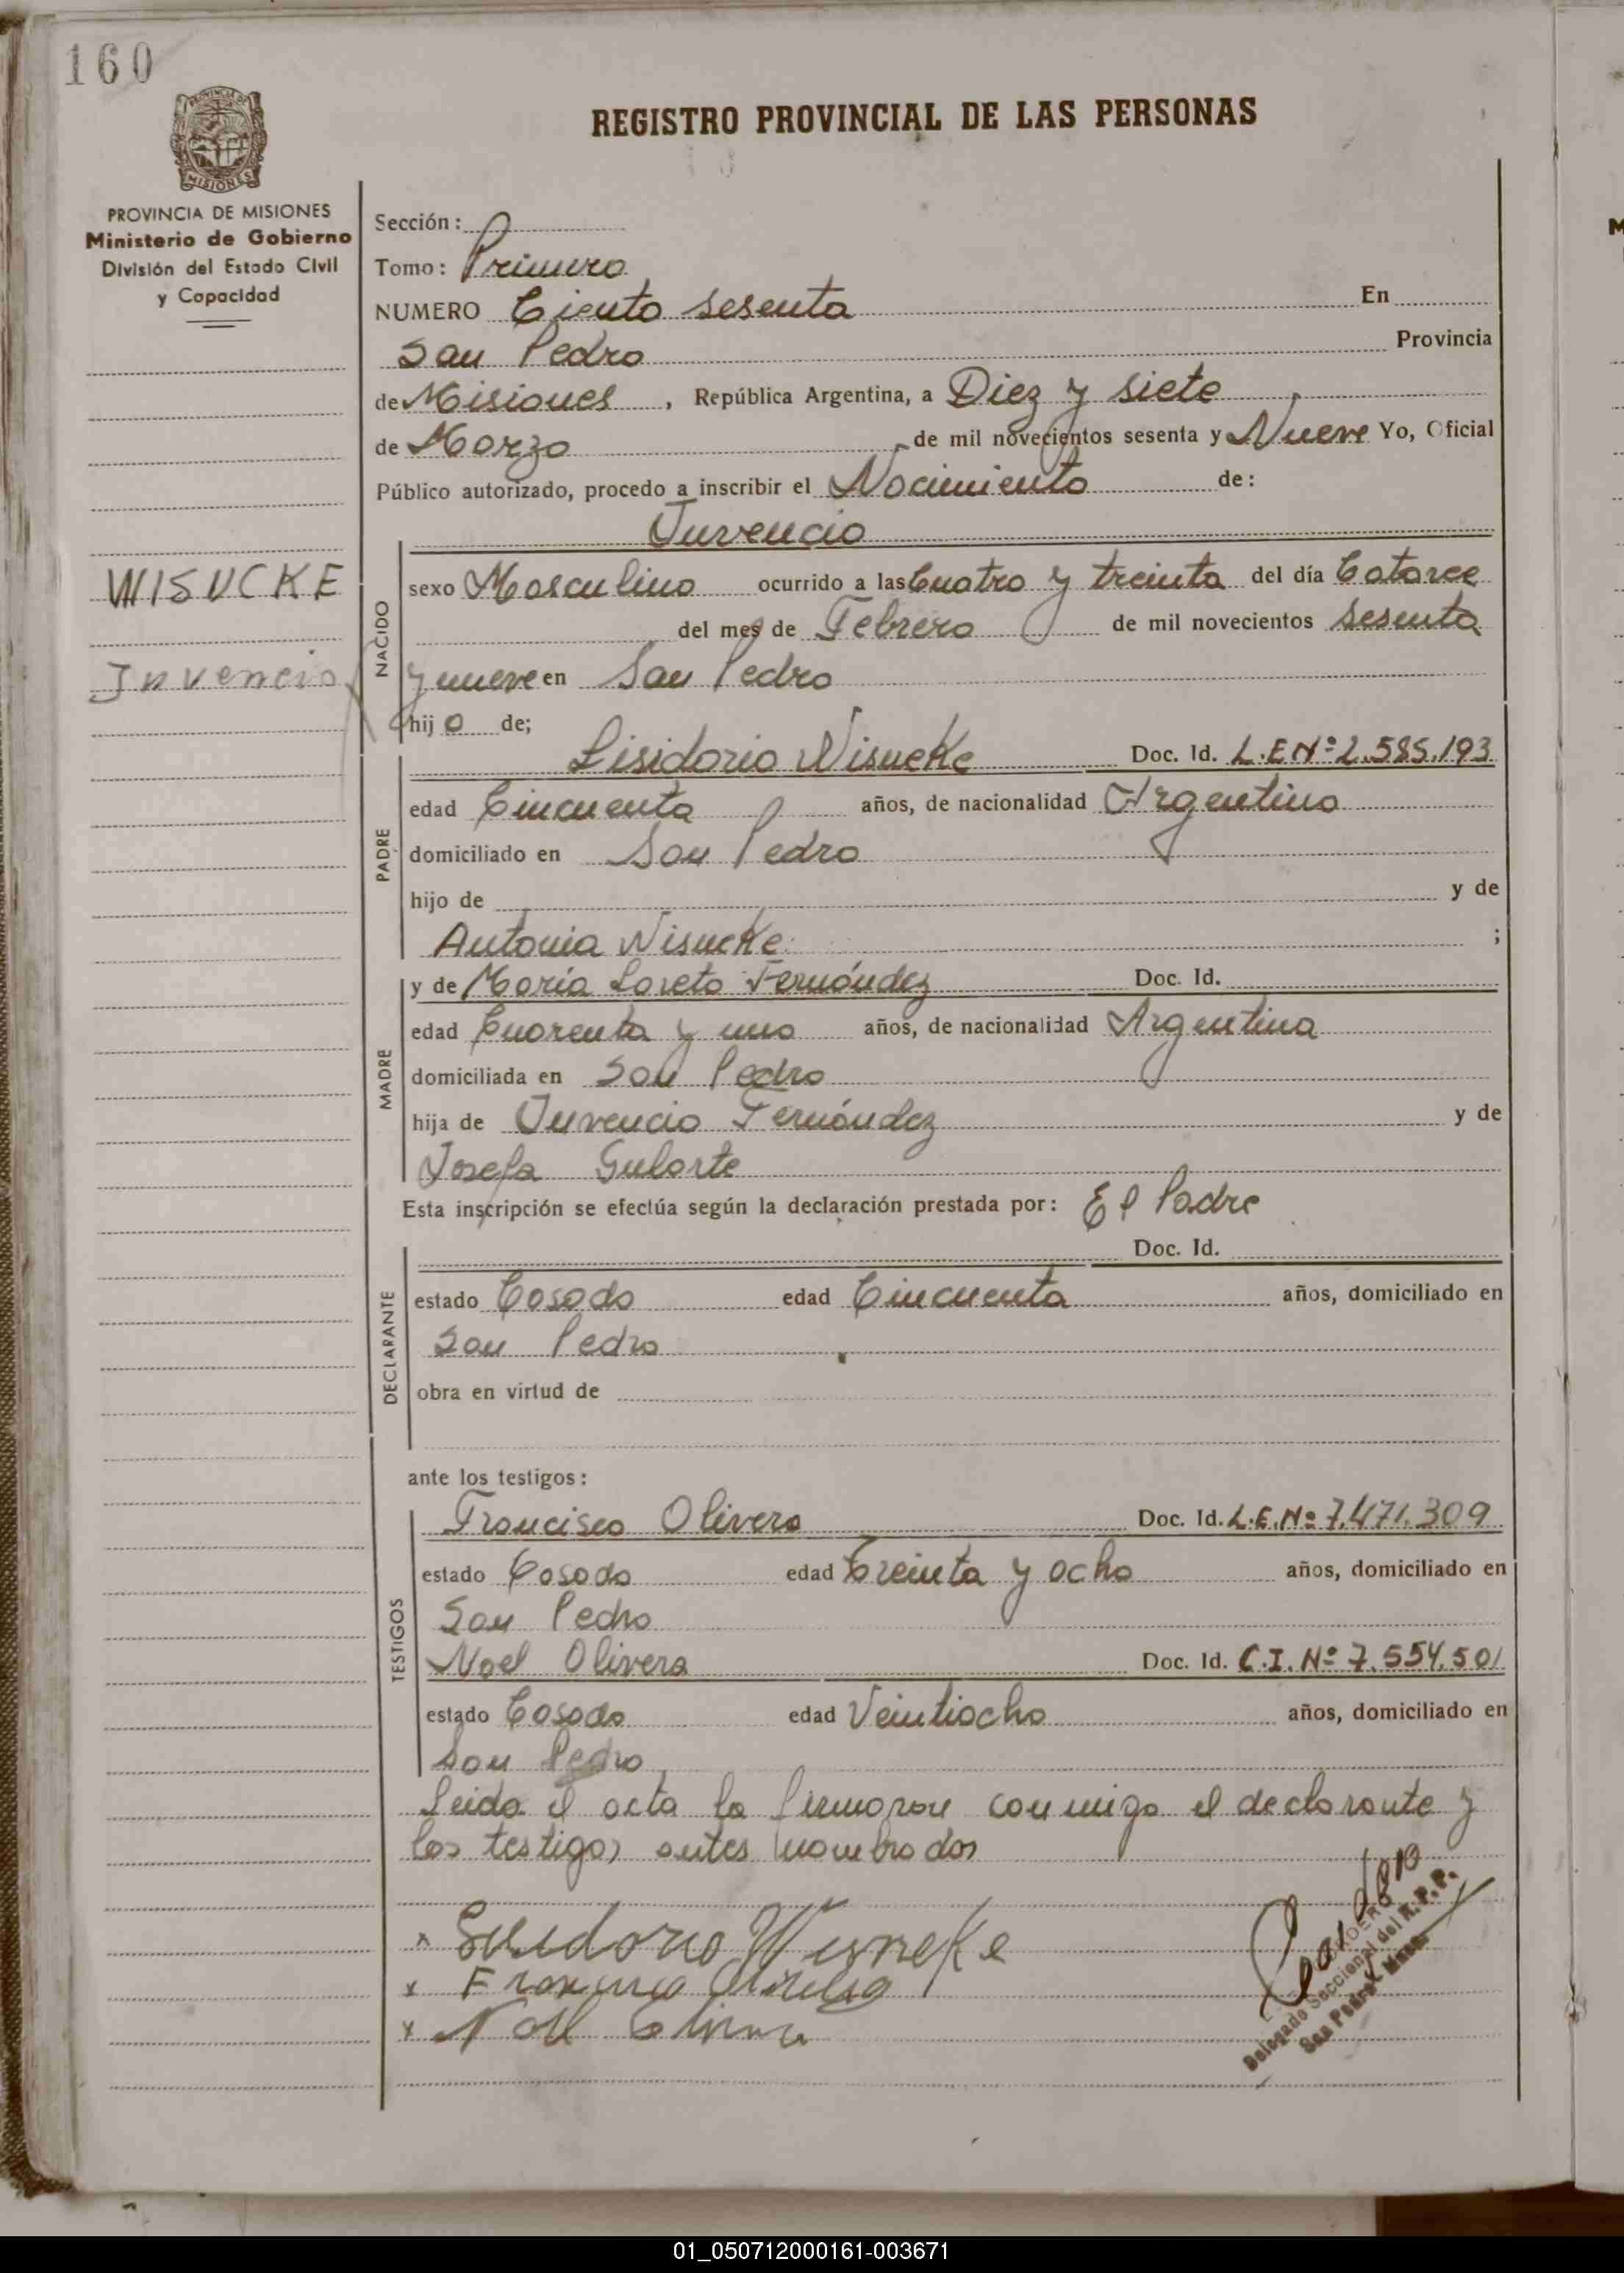 160
PROVINCIA DE MISIONES
Ministerio de Gobierno
División del Estado Civil
y Capacidad
REGISTRO PROVINCIAL DE LAS PERSONAS
Sección:
Tomo: Primero
NUMERO Ciento sesenta En
San Pedro Provincia
de Misiones, República Argentina, a Diez y siete
de Marzo de mil novecientos sesenta y Nueve Yo, Oficial
Público autorizado, procedo a inscribir el Nacimiento de:
Juvencio
WISUCKE
Juvencio
NACIDO
sexo Masculino ocurrido a las Cuatro y treinta del día Catorce
del mes de Febrero de mil novecientos sesenta
y nueve en San Pedro
hijo de;
PADRE
Lisidorio Wisneke Doc. Id. L.E Nº 2.585.193
edad Cincuenta años, de nacionalidad Argentino
domiciliado en San Pedro
hijo de y de
Antonia Wisneke ;
MADRE
y de María Loreto Fernández Doc. Id.
edad Cuarenta y uno años, de nacionalidad Argentina
domiciliada en San Pedro
hija de Juvencio Fernández y de
Josefa Gularte
Esta inscripción se efectúa según la declaración prestada por: El Padre
Doc. Id.
DECLARANTE
estado Casado edad Cincuenta años, domiciliado en
San Pedro
obra en virtud de
ante los testigos:
TESTIGOS
Francisco Olivera Doc. Id. L.E.Nº 7.471.309
estado Casado edad Treinta y ocho años, domiciliado en
San Pedro
Noel Olivera Doc. Id. C.I. Nº 7.554.501
estado Casado edad Veintiocho años, domiciliado en
San Pedro
Leida el acta la firmaron conmigo el declarante y
los testigos antes nombrados
Wisneke
Delegado Seccional del R.P.P.
San Pedro
01_050712000161-003671